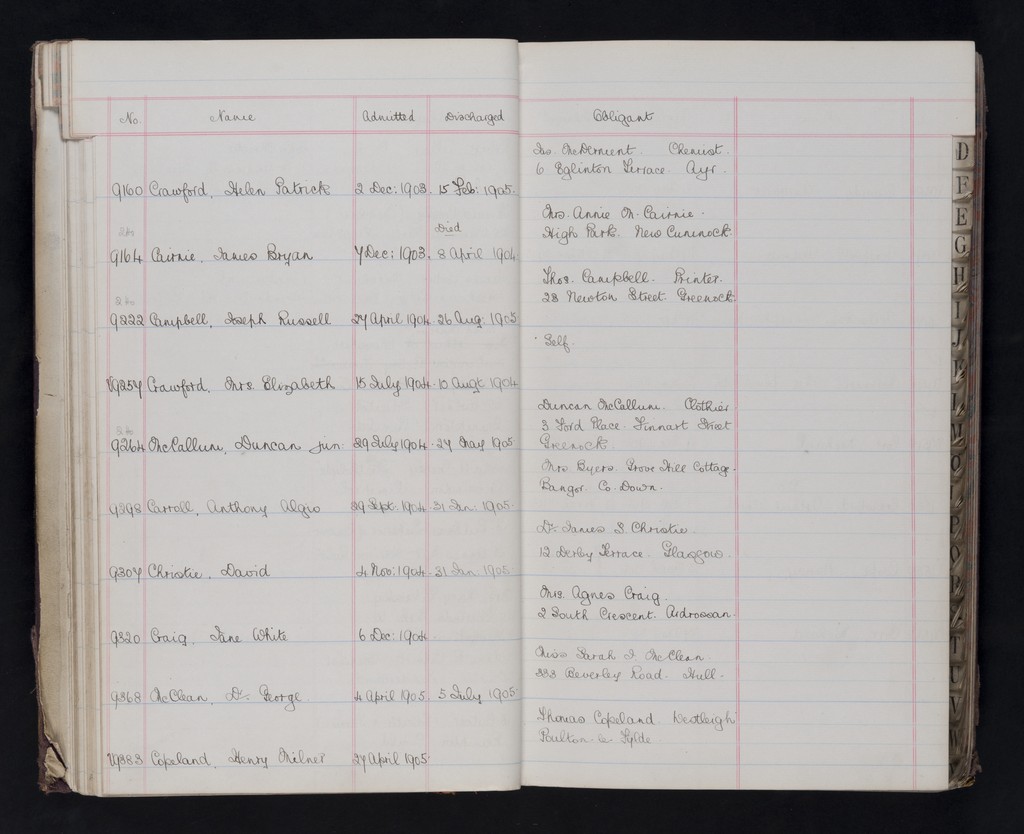 No. Name Admitted Discharged Obligant
Jas. McDerment. Chemist.
6 Eglinton Terrace Ayr.
9160 Crawford, Helen Patrick 2 Dec: 1903. 15 Feb: 1905.
Mrs. Annie M. Cairnie.
Died High Park. New Cumnock.
9164 Cairnie, James Bryan 7 Dec: 1903. 8 April 1904
Thos. Campbell. Printer.
28 Newton Street. Greenock.
9222 Campbell, Joseph Russell 27 April 1904. 26 Aug: 1905
Self.
9257 Crawford, Mrs. Elizabeth 15 July 1904. 10 Augt 1904
Duncan McCallum. Clothier
3 Ford Place. Finnart Street
9264 McCallum, Duncan jun: 29 July 1904. 27 May 1905 Greenock.
Mrs Byers. Grove Hill Cottage.
Bangor. Co. Down.
9298 Carroll, Anthony Algio 29 Sept. 1904. 31 Jan. 1905.
Dr. James S. Christie
12 Derby Terrace. Glasgow.
9307 Christie, David 4 Nov: 1904. 31 Jan 1905.
Mrs. Agnes Craig.
2 South Crescent. Ardrossan.
9320 Craig, Jane White 6 Dec: 1904.
Miss Sarah J. McClean.
333 Beverley Road. Hull.
9368 McClean, Dr. George. 4 April 1905. 5 July 1905.
Thomas Copeland. Westleigh
Poulton-le-Fylde.
9383 Copeland, Henry Milner 27 April 1905
D
F
E
G
H
I
J
K
L
M
O
P
Q
R
T
U
V
W